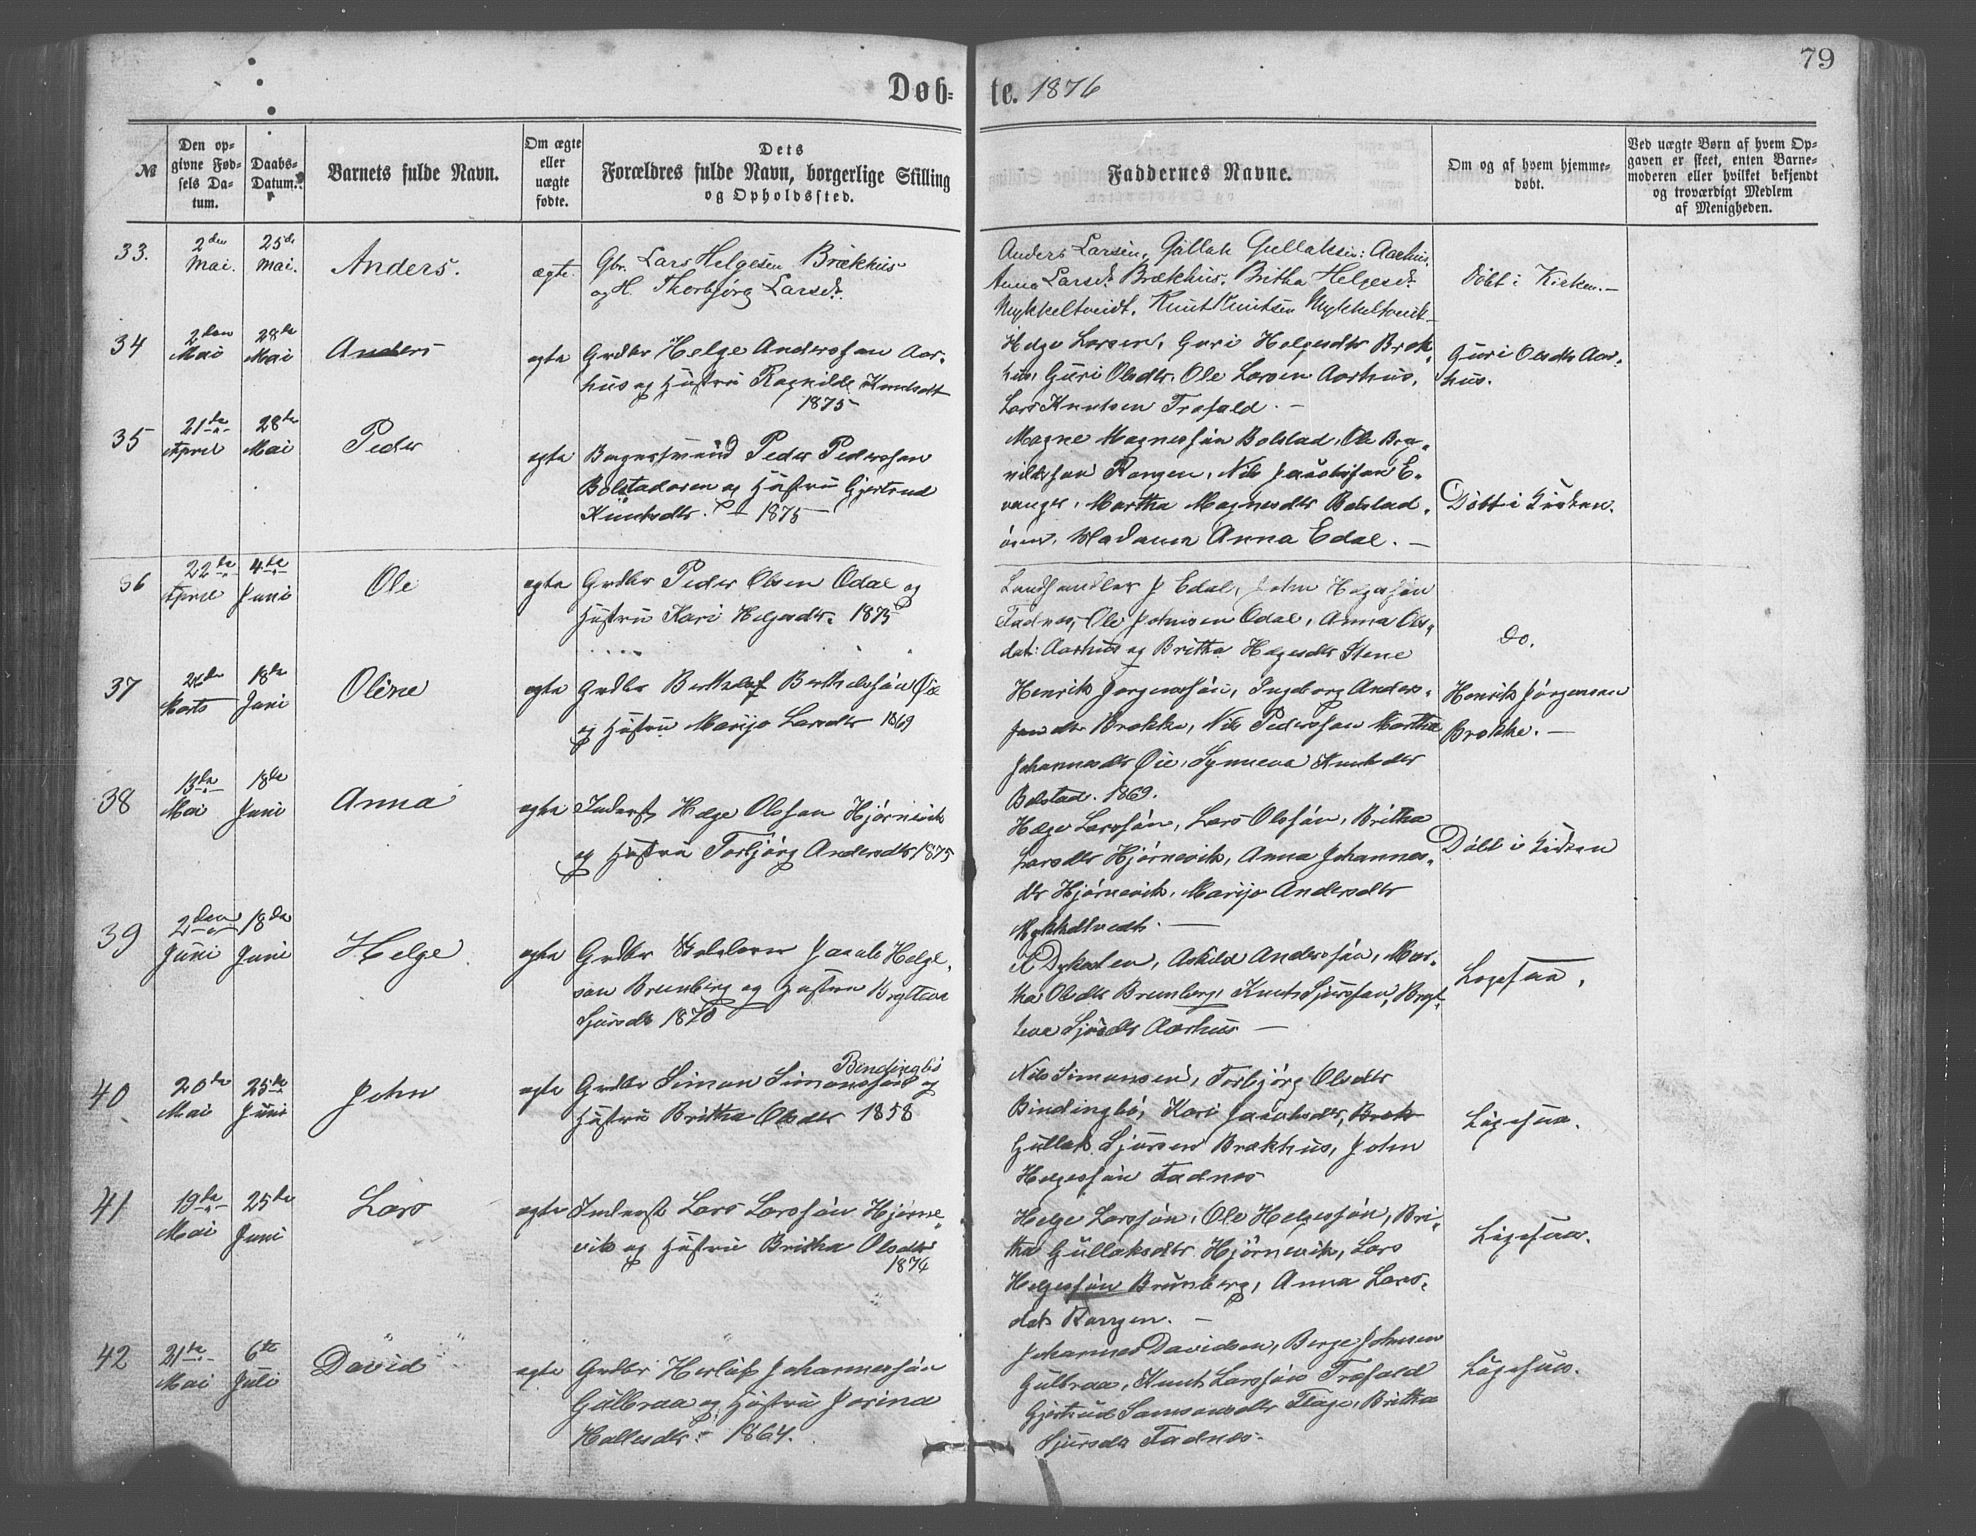 79
Døb= te. 1876
№
Den op-
givne Fød-
sels Da-
tum.
Daabs-
Datum.
Barnets fulde Navn.
Om ægte
eller
uægte
fødte.
Dets
Forældres fulde Navn, borgerlige Stilling
og Opholdssted.
Faddernes Navne.
Om og af hvem hjemme-
døbt.
Ved uægte Børn af hvem Op-
gaven er skeet, enten Barne-
moderen eller hvilket bekjendt
og troværdigt Medlem
af Menigheden.
33.
2den
Mai.
25de
Mai.
Anders.
ægte.
Gbr. Lars Helgesen Brækhus
og H. Thorbjørg Larsdt.
Anders Larsen, Gullak Gullaksen: Aarhus,
Anna Larsdt. Brækhus. Britha Helgesdt.
Mykkeltveidt. Knut Knutsen Mykkeltveit-
Døbt i Kirken.-
34
2den
Mai
28de
Mai
Anders
egte
Grdbr Helge Anderssøn Aar-
hus og Hustru Ragnilde Knutsdt
1875
Helge Larsen, Guri Helgesdtr Bræk-
hus, Guri Olsdtr, Ole Larsen Aarhus,
Lars Knutsen Trefald. -
Guri Olsdtr Aar-
hus.
35
21de
April
28de
Mai
Peder
egte
Bøgnesmænd Peder Pederssøn
Bolstadøren og Hustru Gjertrud
Knutsdtr. 1875
Magne Magnessøn Bolstad, Ole Bra-
nildssøn Rongen, Nils Jacobssøn E-
vanger, Martha Magnesdtr Bolstad-
øren, Madame Anna Edal. -
Døbt i Kirken.
36
22de
April
4de
Juni
Ole
egte
Grdbr Peder Olsen Odal og
Hustru Kari Helgesdtr. 1875
Landhandler J Edal, John Helgessøn
Fadnes, Ole Johnsen Odal, Anna Ols-
dat: Aarhus og Britha Helgesdtr Stene
Do.
37
Marts
18de
Juni
Oline
egte
Grdbr Berthelsøn Øie
og Hustru Marijo Larsdtr 1869
Henrik Jørgenssøn, Ingeborg Anders-
Brække, Nils Pederssøn Martha
Johannesdtr Øie, Synneva Knutsdtr
Bolstad. 1869.
Henrik Jørgensen
Brække. -
38
13de
Mai
18de
Juni
Anna
egte
Inderst Helge Olssøn Hjørnevik
og Hustru Torbjørg Andersdtr 1875
Helge Larssøn, Lars Olssøn, Britha
Larsdtr Hjørnevik, Anna Johannes-
dtr Hjørnevik, Marijo Andersdtr
Mykkeltvedt. -
Døbt i Kirken
39
2den
Juni
18de
Juni
Helge.
egte
Grdbr Jacob Helge-
søn Brunborg og Hustru
Sjursdtr 1870
Dykesten, Askild Anderssøn, Mar-
tha Olsdtr Brunborg, Knut Sjurssøn, Bryt-
teva Sjursdtr Aarhus -
Ligesaa.
40
20de
Mai
25de
Juni
John
egte
Bindingbø
Grdbr Simon Simonssøn og
Hustru Britha Olsdtr 1858
Nils Simonsen, Torbjørg Olsdtr
Bindingbø, Kari Jacobsdtr, Bræk
Gullak Sjursen Brækhus, John
Helgessøn Fadnes
Ligesaa.
41
19de
Mai
25de
Juni
Lars
egte
Inderst Lars Larssøn Hjørne-
vik og Hustru Britha Olsdtr
1876
Helge Larssøn, Ole Helgessøn, Bri-
tha Gullaksdtr Hjørnevik, Lars
Helgessøn Brunborg, Anna Lars-
datr Rongen. -
Ligesaa.
42
21de
Mai
6te
Juli
David
egte
Grdbr Herlof Johannessøn
Gulbraa og Hustru Josina
Hallesdtr - 1864.
Johannes Davidsen, Berge Johnsen
Gulbraa, Knut Larssøn Trefald
Gjertrud Samsonsdtr Flage, Britha
Sjursdtr Fadnes.
Ligesaa.